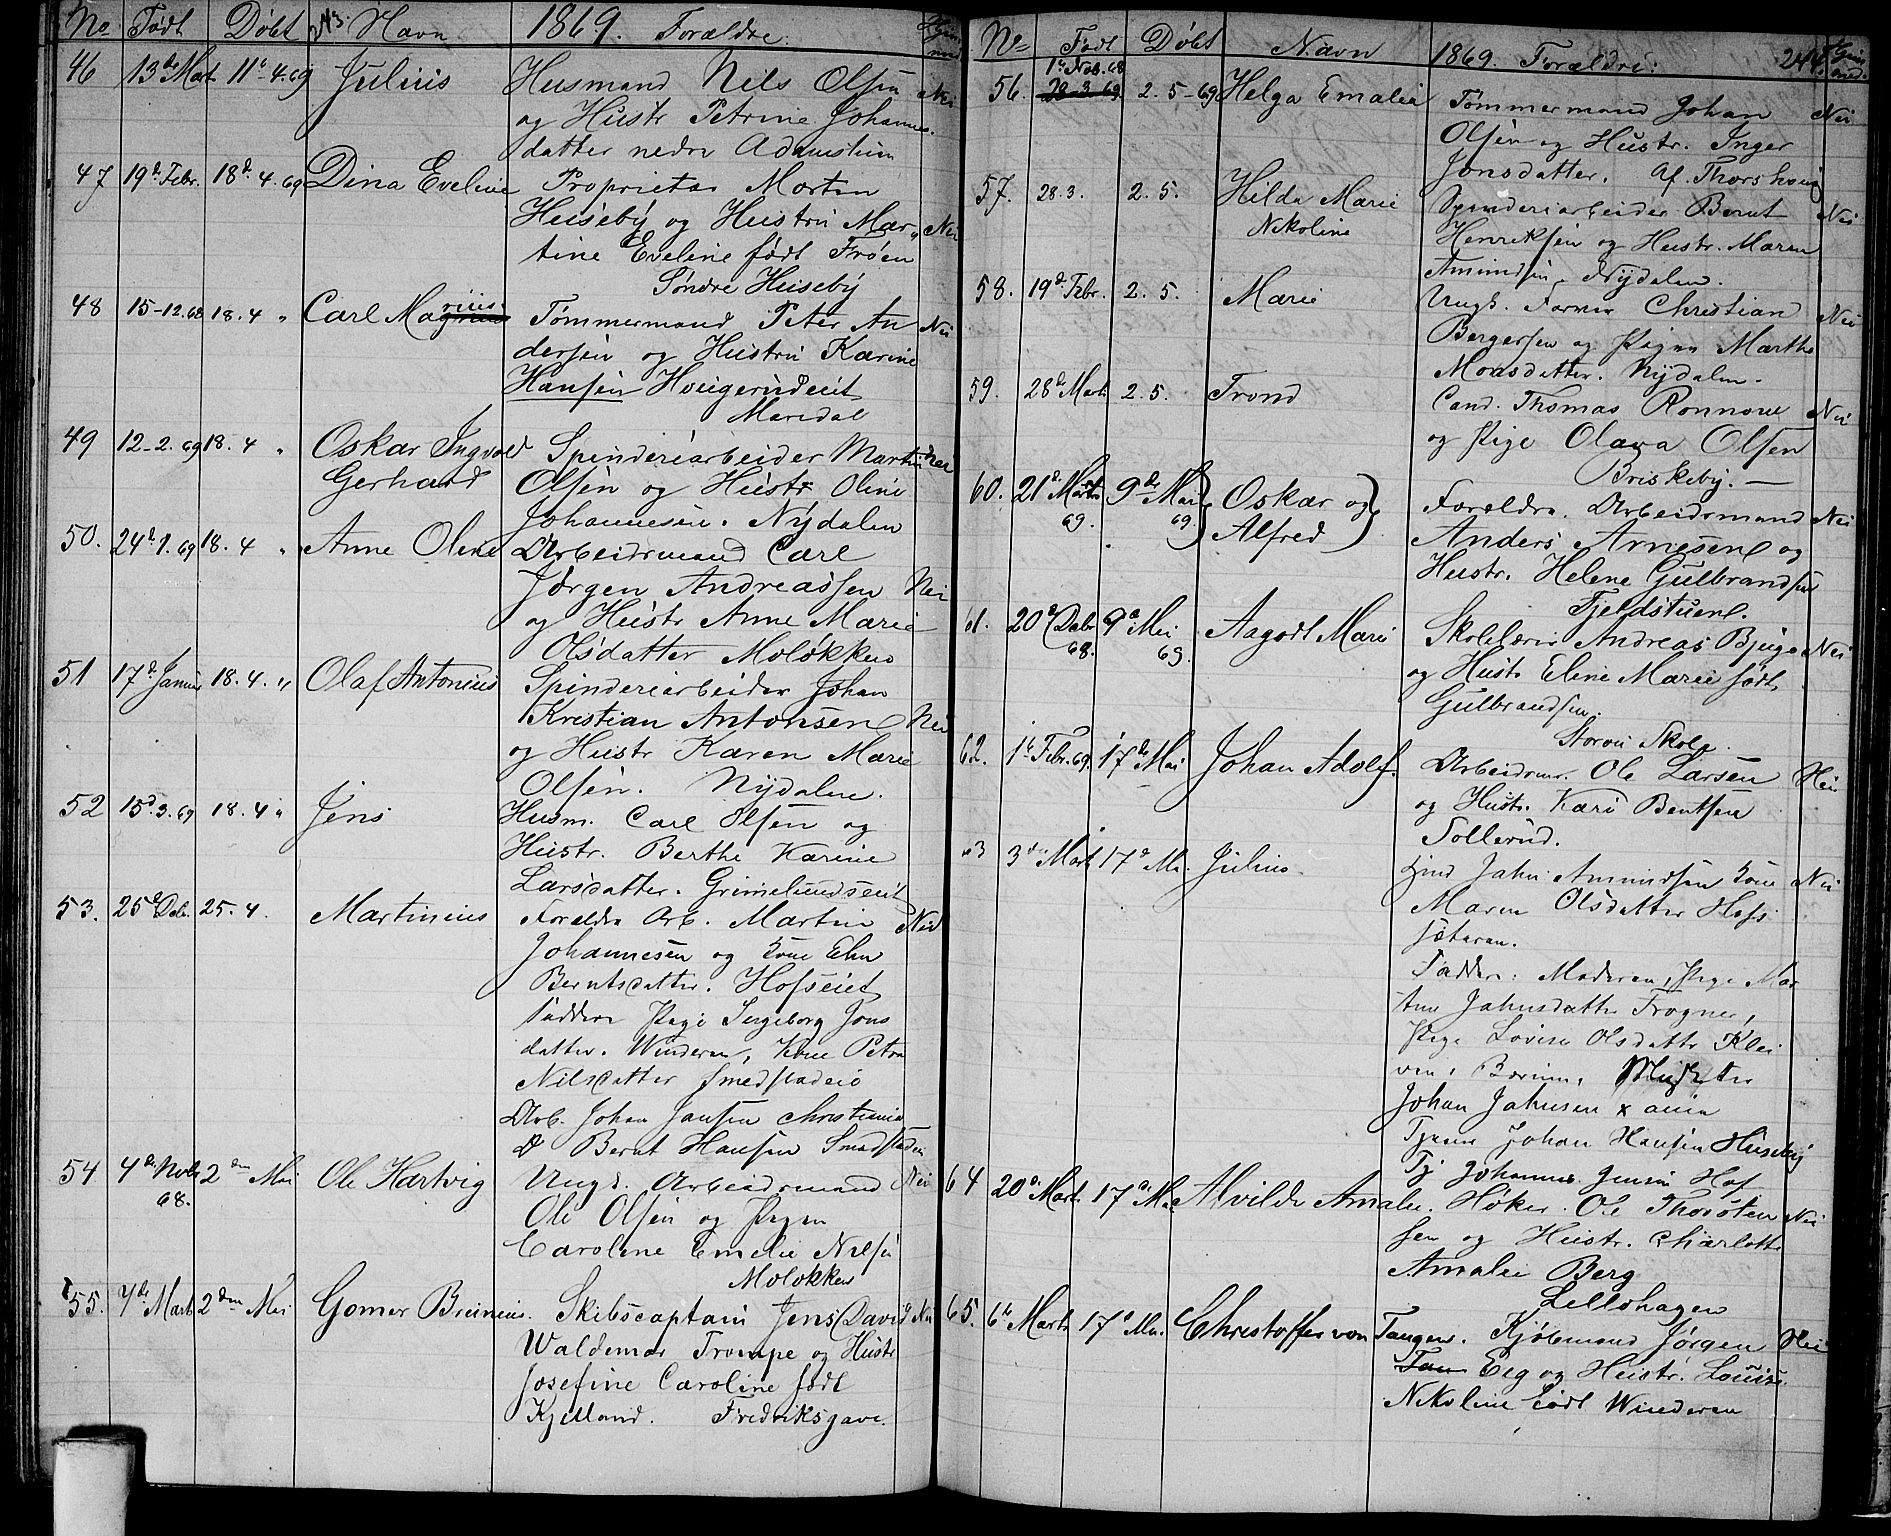 No Født Døbt Navn 1869. Forældre.
46 13de Mart 11te 4. 69 Julius Husmand Nils Olsen Nei
og Hustr Petrine Johannes
datter nedre Adamstuen
47 19de Febr. 18de 4. 69 Dina Eveline Proprietær Morten
Heiseby og Hustru Mar„ Nei
tine Eveline født Frøen
Søndre Heiseby
48 15-12.68 18. 4 „ Carl Marius Tømmermand Peter An Nei
dersen og Hustru Karine
Hansen Hougerudeiet
Maridal
49 12-2. 69 18. 4 „ Oskar Ingvold Spinderiarbeider Martin Nei
Gerhard Olsen og Hustr Oline
Johannesen. Nydalen
50. 24de 1. 69 18. 4 „ Anne Oline Arbeidsmand Carl
Jørgen Andreassen Nei
og Hustr Anne Marie
Olsdatter Moløkken
51 17de Januar 18. 4. „ Olaf Antonius Spinderiarbeider Johan
Kristian Antonsen Nei
og Hustr Karen Marie
Olsen. Nydalen.
52 15de 3. 69 18. 4 „ Jens Husm. Carl Olsen og
Hustr. Berthe Karine
Larsdatter. Grimelundseiet
53. 25de Deb. 25. 4. Martinius Forældre Arb. Martin Nei
Johannesen og Kone Elen
Berntsdatter. Hofseiet
Faddere Pige Ingeborg Jons
datter. Winderen, Kone Petra
Nilsdatter Smedstadeie
Arb. Johan Jansen Christiania
& Bernt Hansen Smedstadeie
54 4de Novb 2den Mai Ole Hartvig Ungk. Arbeidsmand Nei
68. Ole Olsen og Pigen
Caroline Emelie Nilsen
Moløkken
55. 7de Mart 2den Mai Gomer Breinius. Skibscaptain Jens David Nei
Waldemar Trompe og Hustr
Josefine Caroline født
Kjelland. Fredriksgave.
No Født Døbt Navn 1869. Forældre: 244
1te Nob. 68
56. 28-3. 69. 2. 5-69 Helga Emalie Tømmermand Johan Nei
Olsen og Hustr. Inger
Jonsdatter. af. Thorshoug
57. 28.3. 2. 5. Hilda Marie Spinderiarbeider Bernt Nei
Nikoline Henriksen og Hustr. Maren
Amundsen, Nydalen.
58. 19de Febr. 2. 5. Marie Ungk. Former Christian Nei
Bergersen og Pigen Marthe
Monsdatter. Nydalen.
59. 28de Mart 2. 5. Trond Cand. Thomas Ronnove Nei
og Pige Olava Olsen
Briskeby. —
60. 21de Marts 9de Mai Oskar og Forældre. Arbeidsmand Nei
69. 69. Alfred Anders Arnesen og
Hustr. Helene Gulbrandsen
Fjeldstuen.
61. 20de Debr 9de Mai Aagodt Marie Skolelærer Andreas Bjuge Nei
68. 69. og Hustr Eline Marie født
Gulbrandsen.
Storøi Skole. —
62. 1te Febr. 69. 17de Mai Johan Adolf. Arbeidsm. Ole Larsen Nei
og Hustr. Kari Bentsen
Tollerud.
63 3de Mart 17de Ma. Julius. Jahn Amundsen Kone Nei
Maren Olsdatter Hofs
Faddere: Moderen, Pige Mar
tine Jahnsdatter Frogner,
Pige Lovise Olsdatter Klei
ven. Bærum.
Johan Jahnsen
Johan Hansen Huseby
Tj Johannes Jensen Hof
64 20de Mart 17de Mai Alvilde Amalie. Høker. Ole Thorsten Nei
sen og Hustr. Charlotte
Amalie Berg
Lillohagen
65. 6te Marts 17de Ma. Christoffer von Tangen. Kjøbmand Jørgen Nei
Tan Eeg og Hustr. Louise
Nikoline født Winderen